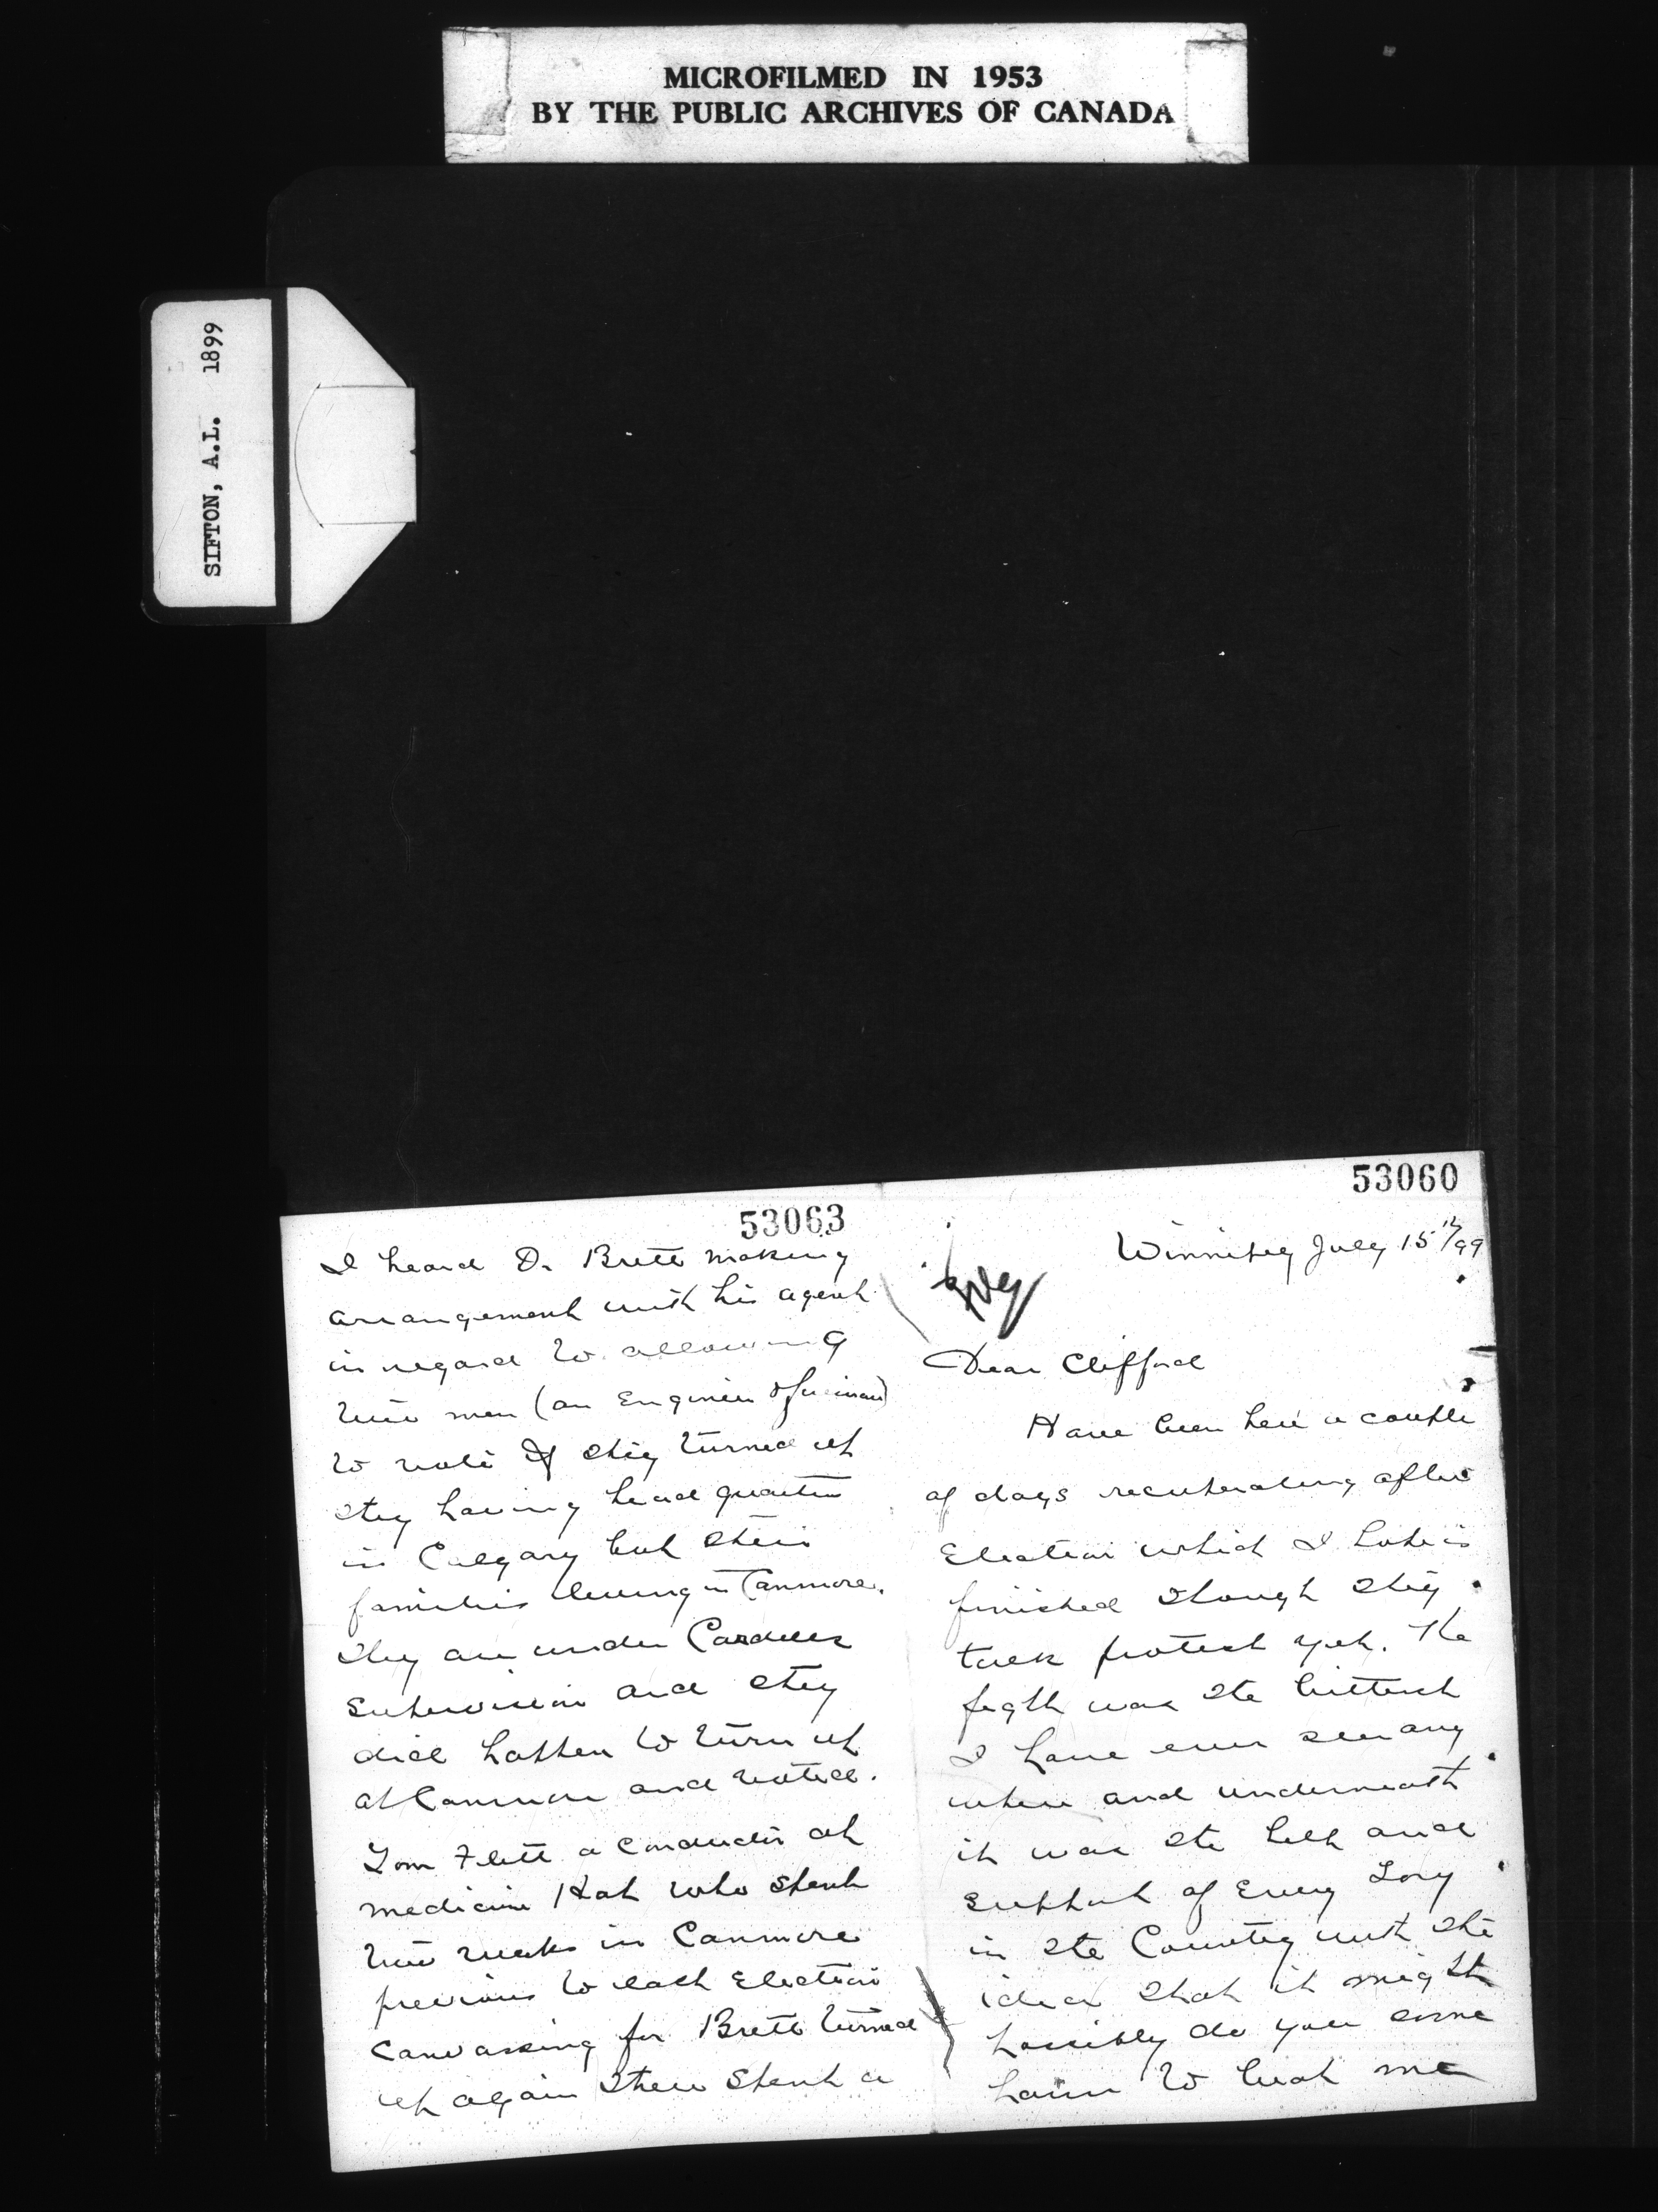 MICROFILMED IN 1953
BY THE PUBLIC ARCHIVES OF CANADA
SIFTON, A.L. 1899
53063
I heard Dr Brett making
arrangement with his agent
in regard to allowing
two men (an Engineer & fireman)
to vote if they turned up
they having head quarters
in Calgary but their
families living in Canmore.
They are under Cardell's
supervision and they
did happen to turn up
at Canmore and voted.
Tom Flett a conductor at
Medicine Hat who spent
two weeks in Canmore
previous to each Election
canvassing for Brett turned
up again there spent a
53060
Winnipeg July 15th/99
Dear Clifford
Have been here a couple
of days recuperating after
Election which I hope is
finished though they
talk protest yet. The
fight was the bitterest
I have ever seen any
where and underneath
it was the help and
support of Every Tory
in the Country with the
idea that it might
possibly do you some
harm to beat me